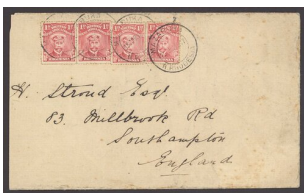 H. Stroud Esq!
83. Millbrook Rd
Southampton
England